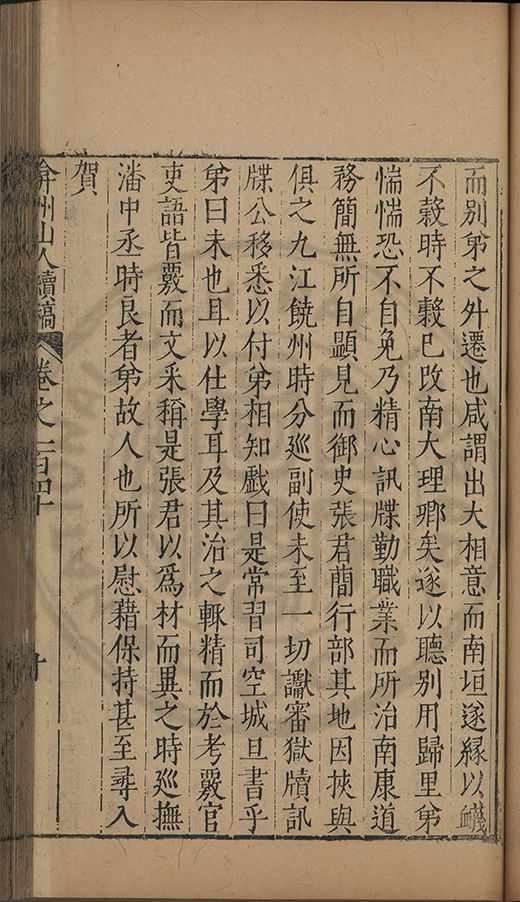 而別弟之外遷也咸謂出大相意而南垣遂緣以衊
不穀時不穀已改南大理卿矣遂以聽別用歸里弟
惴惴恐不自免乃精心訊牒勤職業而所治南康道
務簡無所自顯見而御史張君蕳行部其地因挾與
俱之九江饒州時分巡副使未至一切讞審獄牘訊
牒公移悉以付弟相知戲曰是常習司空城旦書乎
弟曰未也耳以仕學耳及其治之輙精而於考覈官
吏語皆覈而文采稱是張君以爲材而異之時巡撫
潘中丞時良者弟故人也所以慰藉保持甚至尋入
賀
弇州山人續稿 卷之一百四十